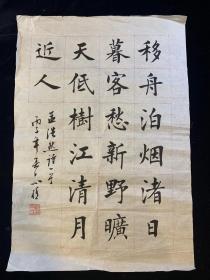 移舟泊烟渚日
暮客愁新野曠
天低樹江清月
近人
孟浩然詩一首
丙子年